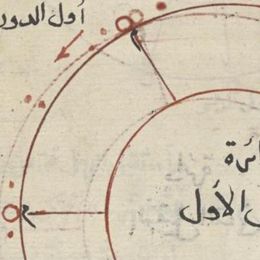 أول الدور
ئرة
الأول